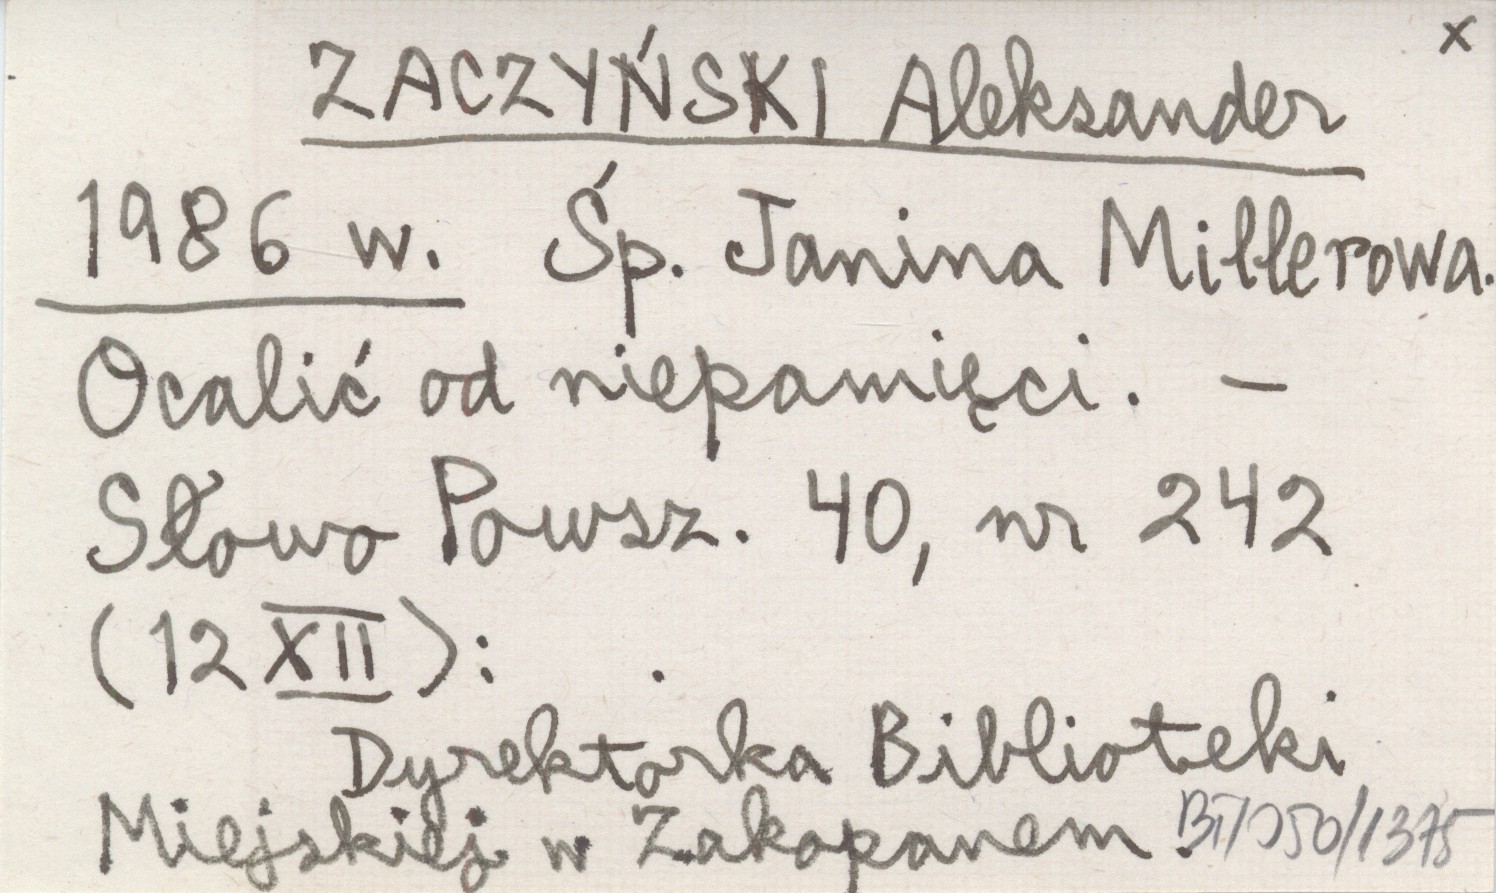 x
ZACZYŃSKI Aleksander
1986 w. Śp. Janina Millerowa.
Ocalić od niepamięci. –
Słowo Powsz. 40, nr 242
(12 XII):
Dyrektorka Biblioteki
Miejskiej w Zakopanem.